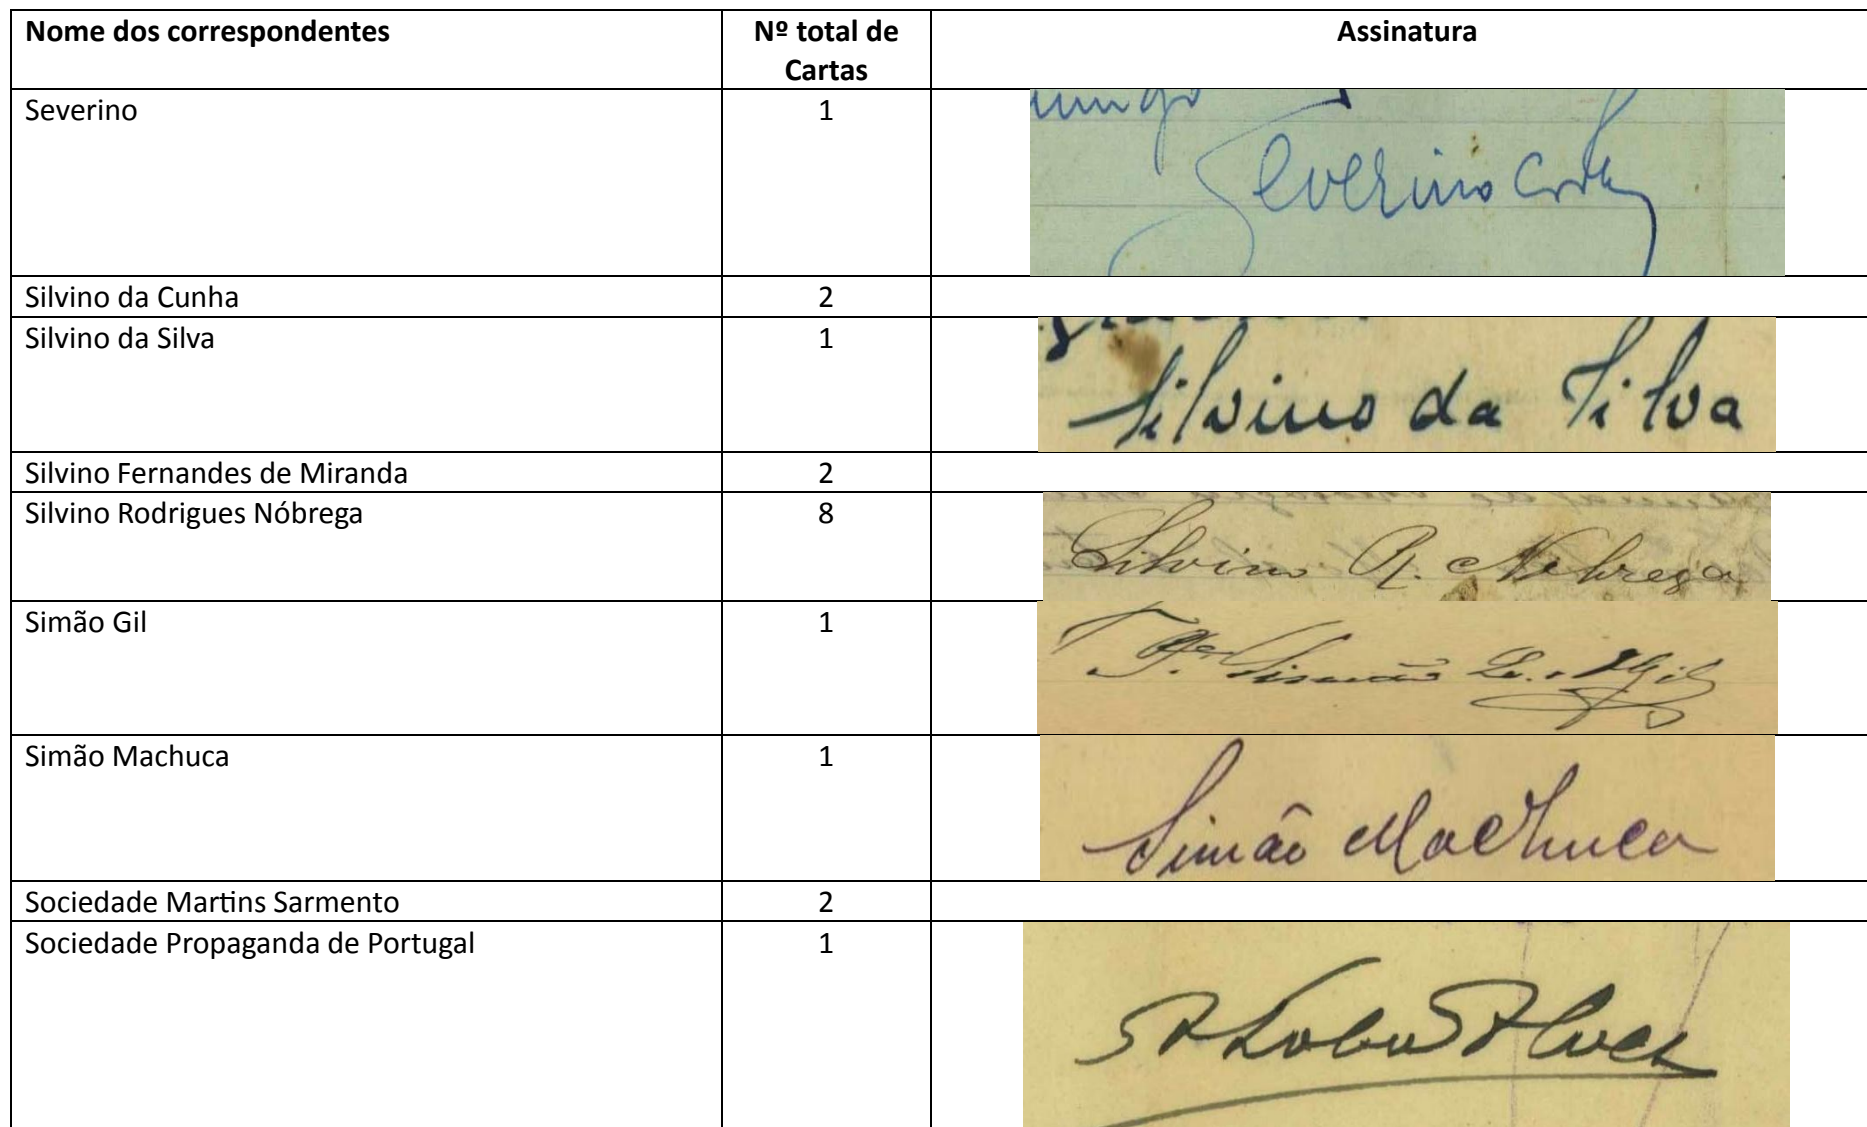 Nome dos correspondentes
Nº total de
Cartas
Assinatura
Severino
1
Severino
Silvino da Cunha
2
Silvino da Silva
1
Silvino da Silva
Silvino Fernandes de Miranda
2
Silvino Rodrigues Nóbrega
8
Silvino R. Nobrega
Simão Gil
1
Simão Gil
Simão Machuca
1
Simão Machuca
Sociedade Martins Sarmento
2
Sociedade Propaganda de Portugal
1